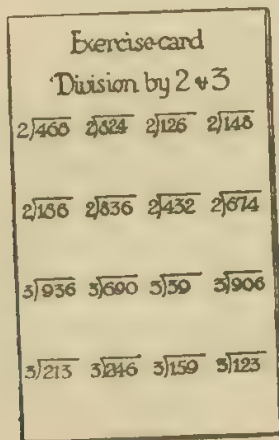 Exercise-card
Division by 2 & 3
2)468 2)824 2)126 2)148
2)186 2)836 2)432 2)674
3)936 3)690 3)39 3)906
3)213 3)246 3)159 3)123